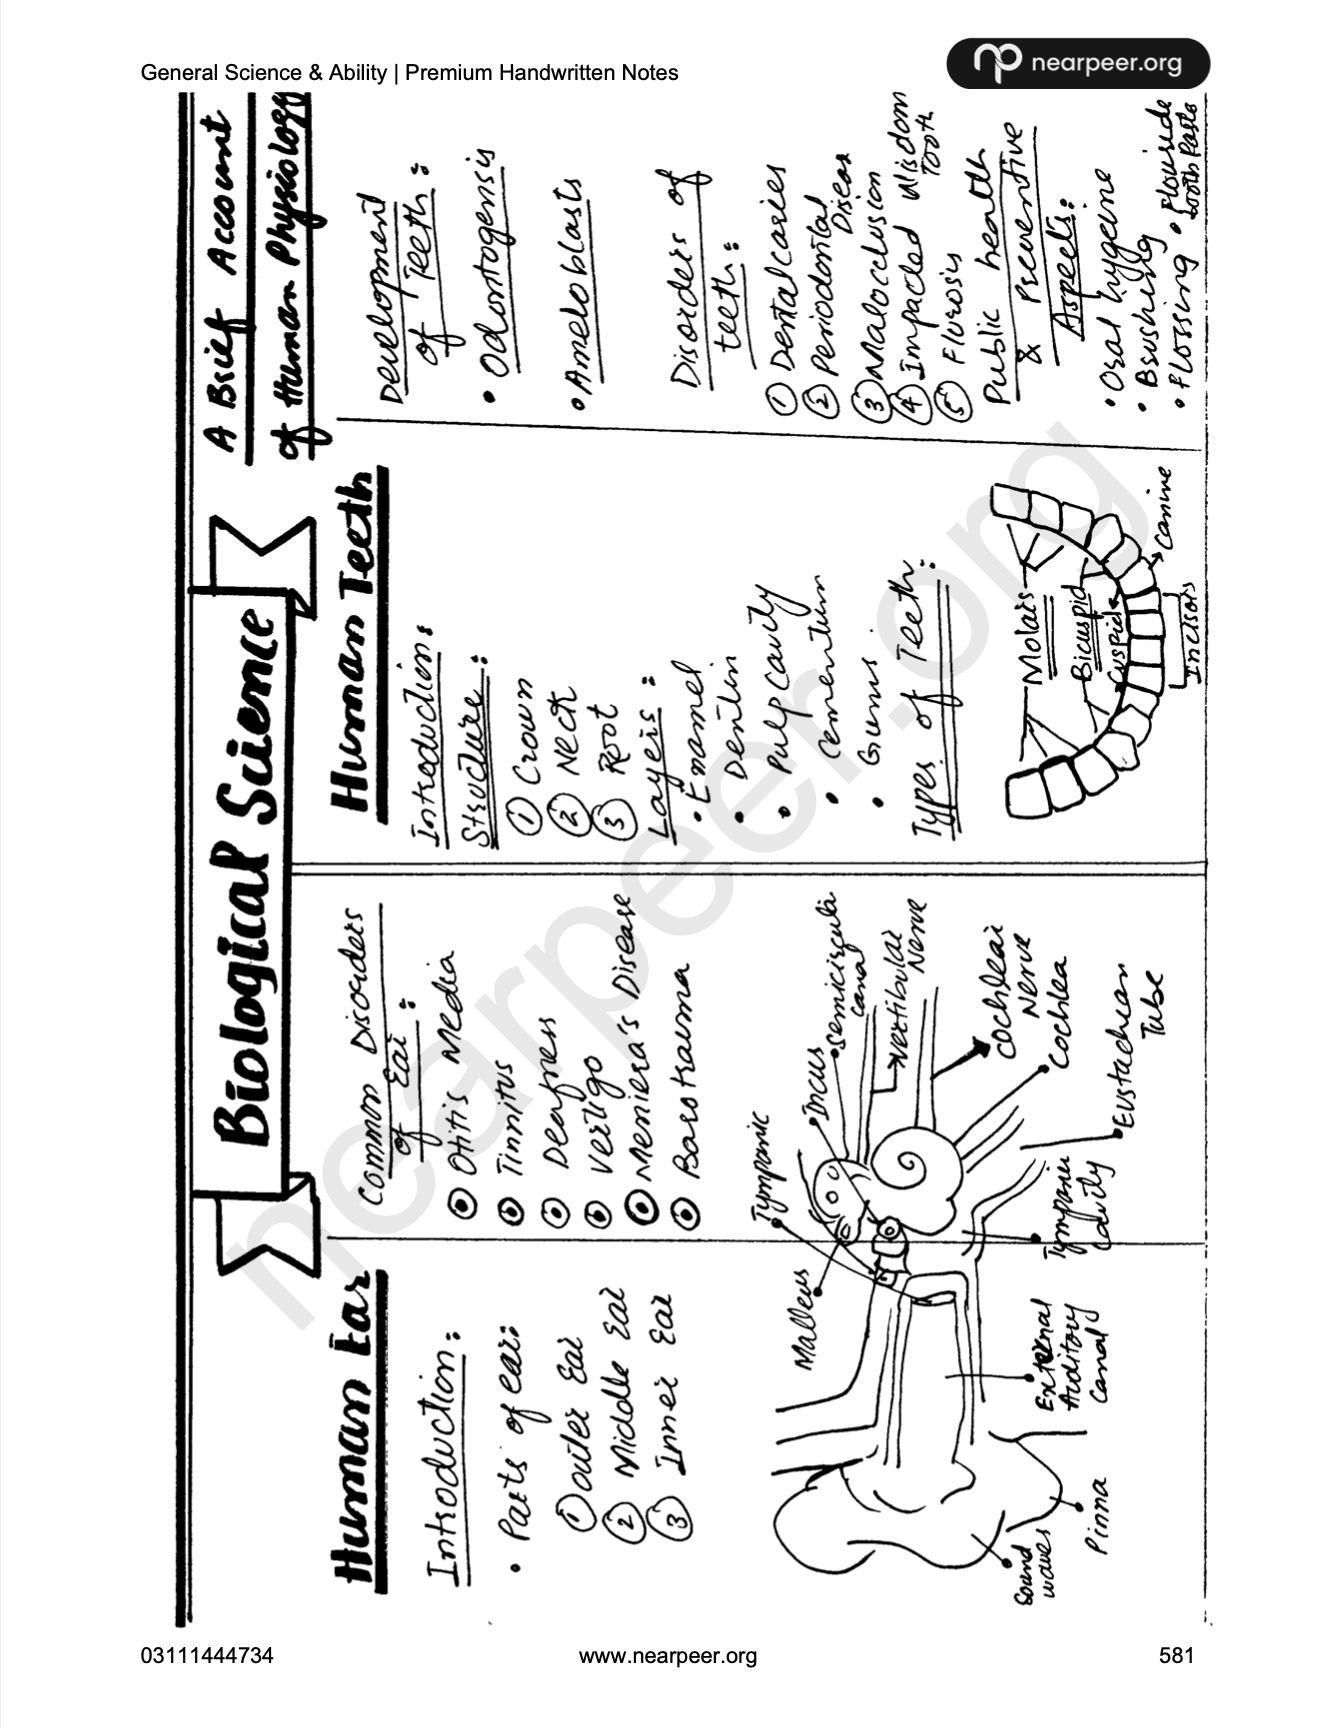 General Science & Ability | Premium Handwritten Notes
nearpeer.org
Biological Science
A Brief Account
of Human Physiology
Human Ear
Introduction:
• Parts of ear:
① outer Ear
② Middle Ear
③ Inner Ear
Common Disorders
of Ear:
Otitis Media
Tinnitus
Deafness
Vertigo
Meniera's Disease
Barotrauma
Tympanic
Malleus
Incus
Semicircular
canal
Vertibular
Nerve
Cochlear
Nerve
Cochlea
Eustachean
Tube
Tympanic
Cavity
External
Auditory
Canal
Pinna
Sound
waves
Human Teeth
Introduction:
Structure:
① Crown
② Neck
③ Root
Layers:
• Enamel
• Dentin
• Pulp cavity
• Cementum
• Gums
Types of Teeth:
Molars
Bicuspid
Cuspid
Canine
Incisors
Development
of Teeth:
• Odontogensis
• Ameloblasts
Disorders of
teeth:
① Dental caries
② Periodontal
Diseas
③ Malocclusion
④ Impacted Wisdom
Tooth
⑤ Flurosis
Public health
& Preventive
Aspects:
• Oral hygeine
• Brushing
• Flossing • Flouride
tooth Paste
nearpeer.org
03111444734
www.nearpeer.org
581